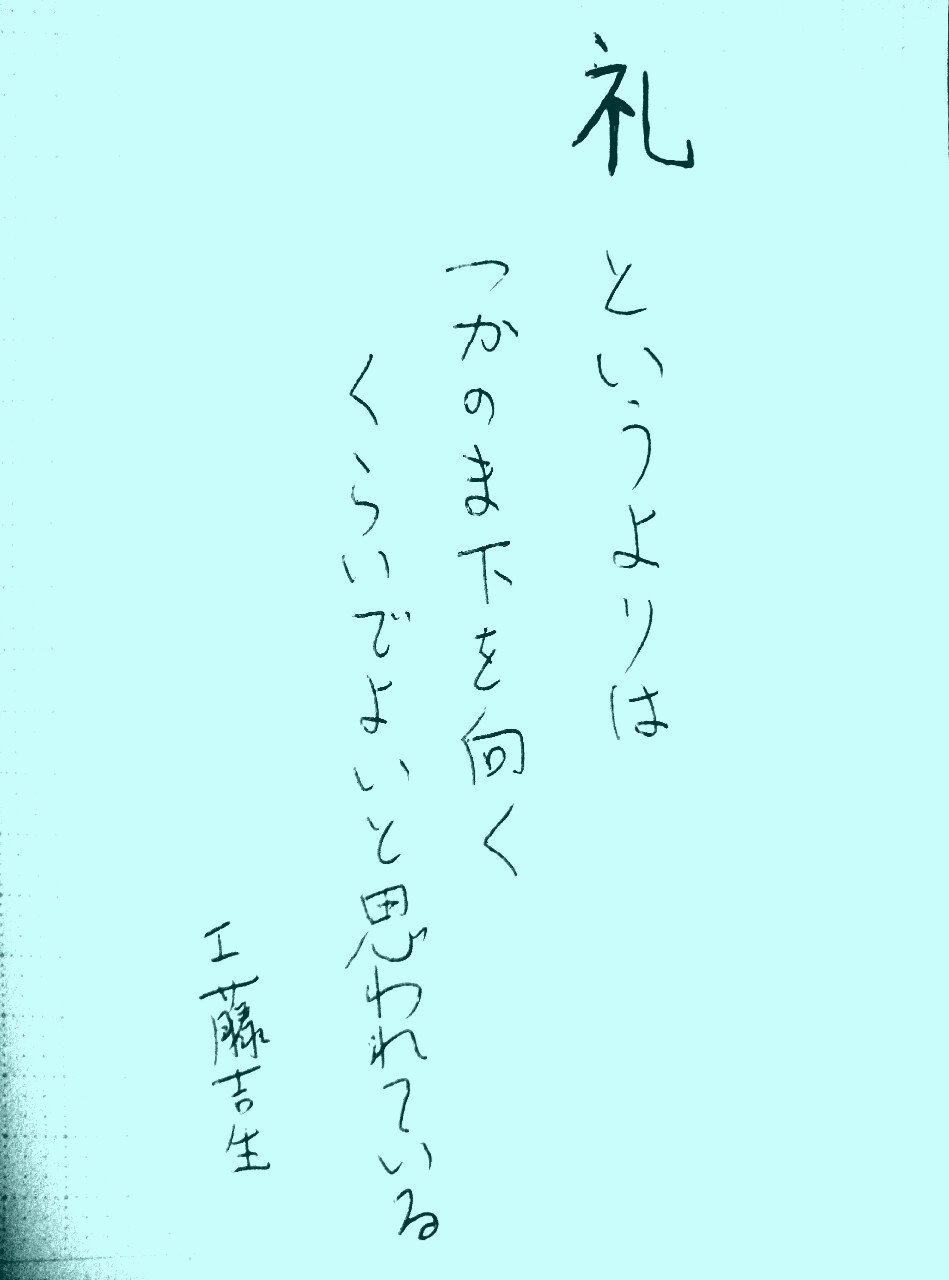 礼というよりは
つかのま下を向く
くらいでよいと思われている
工藤吉生